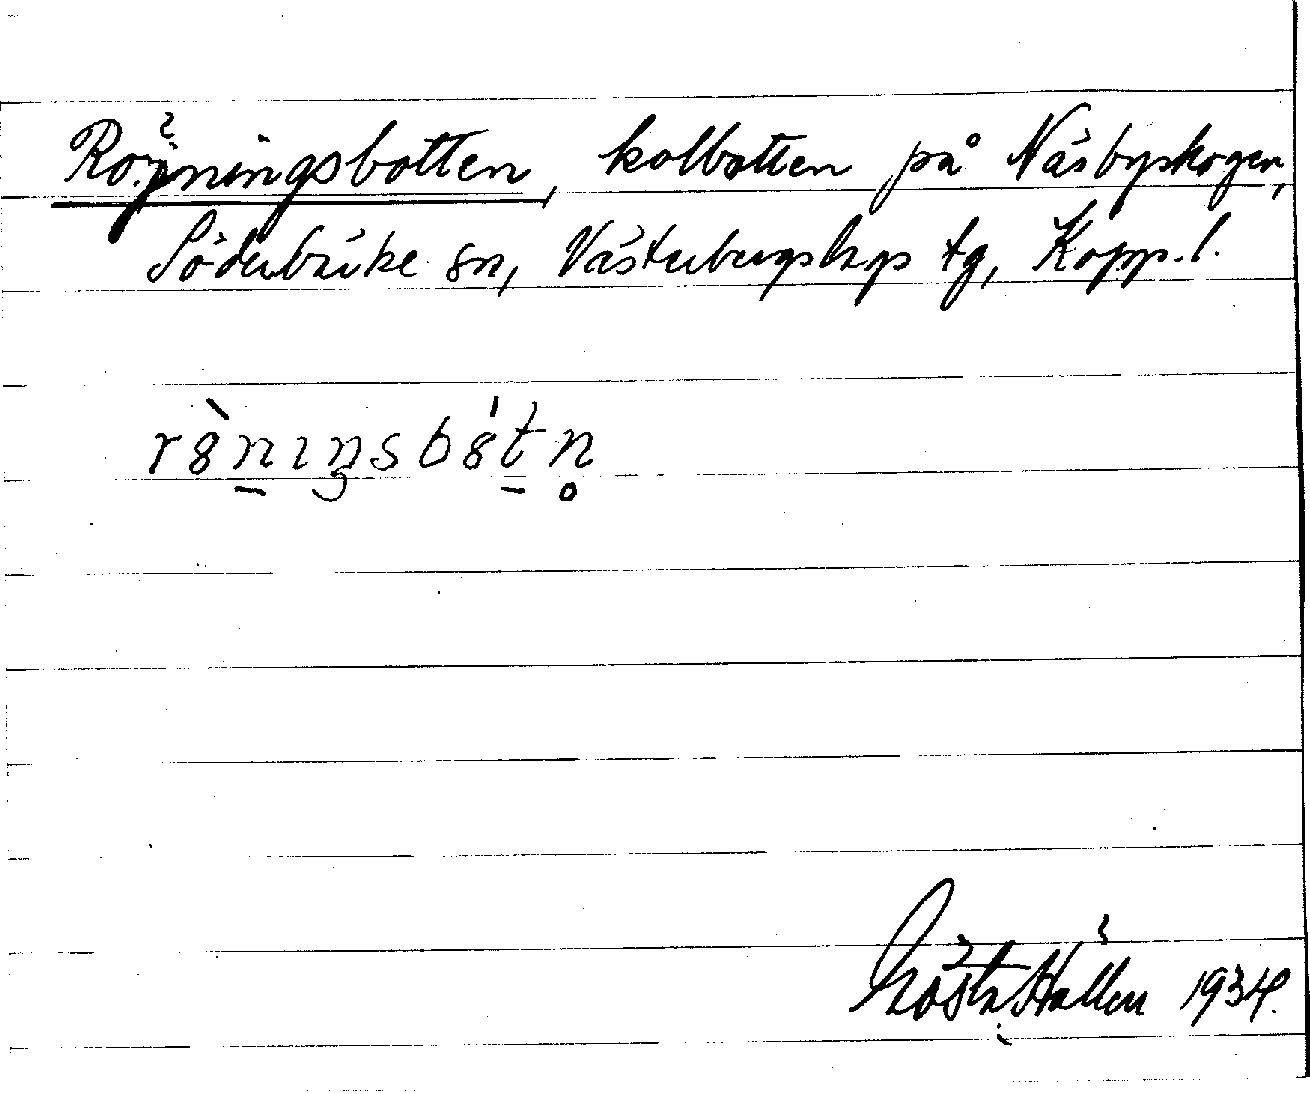 Röjningsbotten, kolbotten på Näsbyskogen,
Söderbärke sn, Västerbergslags tg, Kopp. l.
Gösta Hallén 1934.